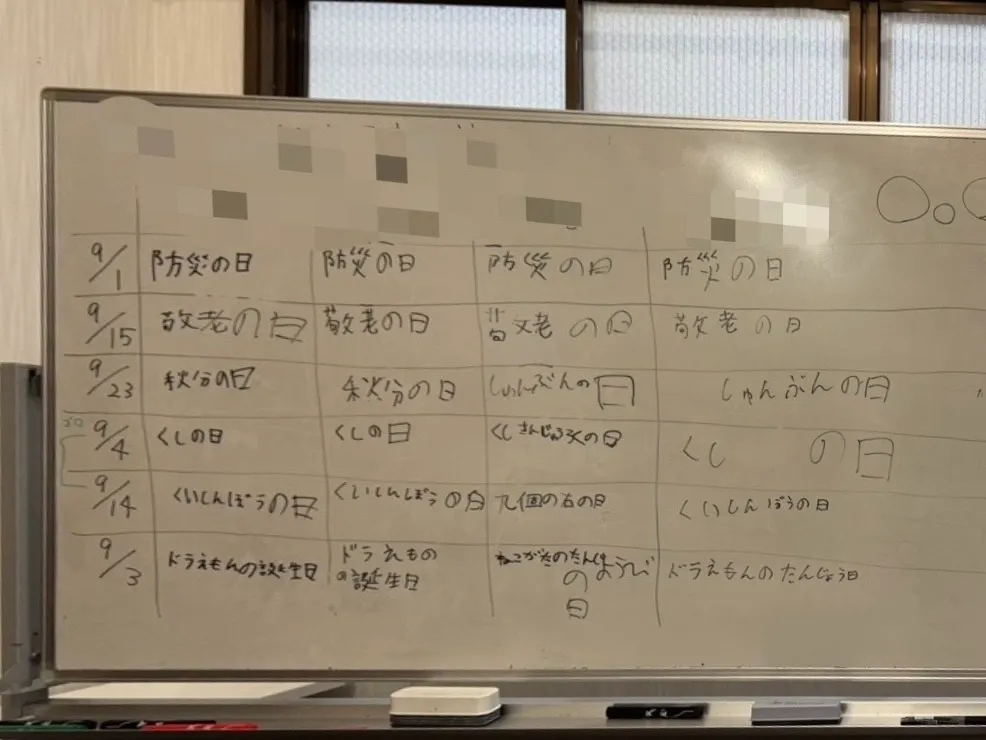 9/1 防災の日 防災の日 防災の日 防災の日
9/15 敬老の日 敬老の日 敬老の日 敬老の日
9/23 秋分の日 秋分の日 しゅんぶんの日 しゅんぶんの日
ゴロ 9/4 くしの日 くしの日 くしさんじゅうろくの日 くし の日
9/14 くいしんぼうの日 くいしんぼうの日 九個の石の日 くいしんぼうの日
9/3 ドラえもんの誕生日 ドラえもの ねこがたのたんじょうび ドラえもんのたんじょう日
の誕生日 の
日